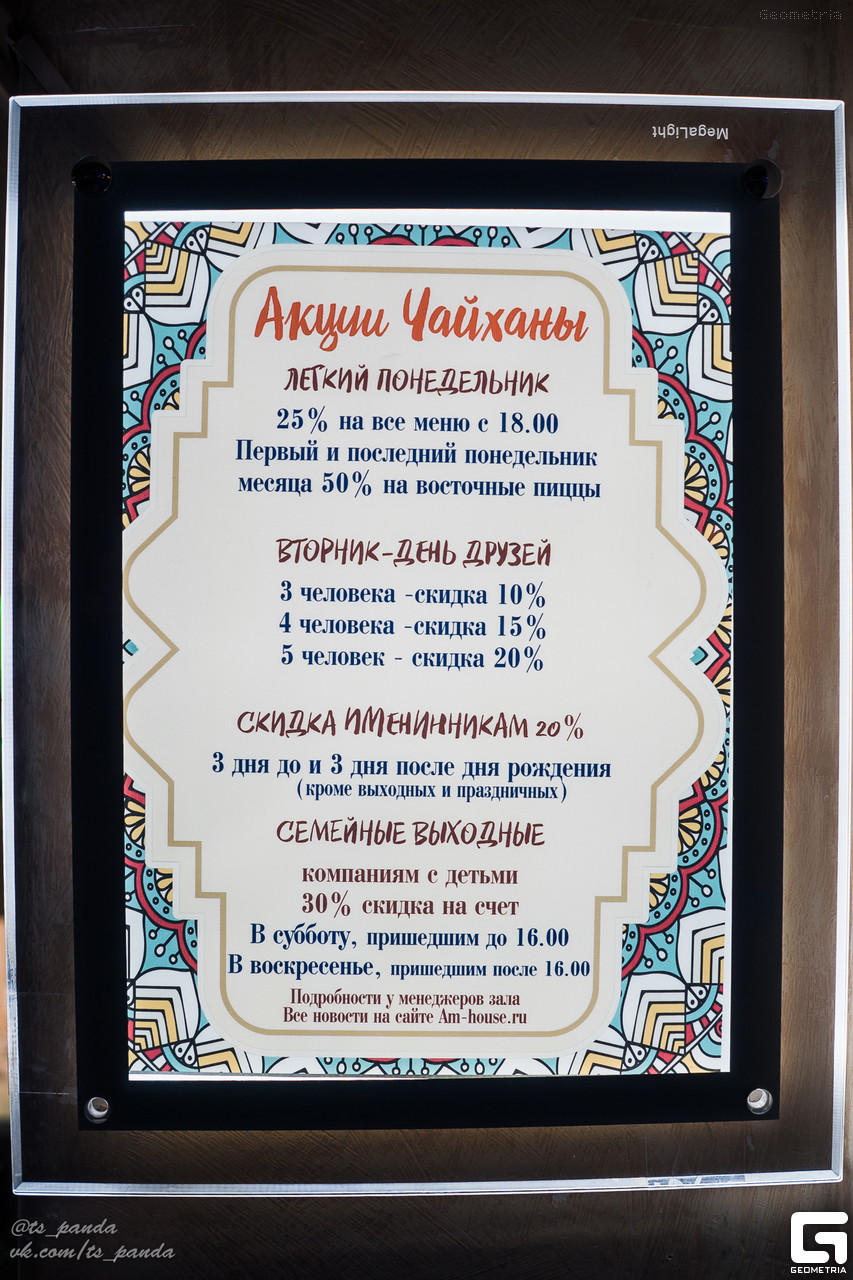 Geometria
MegaLight
Акции Чайханы
ЛЕГКИЙ ПОНЕДЕЛЬНИК
25% на все меню с 18.00
Первый и последний понедельник
месяца 50% на восточные пиццы
ВТОРНИК-ДЕНЬ ДРУЗЕЙ
3 человека -скидка 10%
4 человека -скидка 15%
5 человек - скидка 20%
СКИДКА ИМЕНИННИКАМ 20%
3 дня до и 3 дня после дня рождения
(кроме выходных и праздничных)
СЕМЕЙНЫЕ ВЫХОДНЫЕ
компаниям с детьми
30% скидка на счет
В субботу, пришедшим до 16.00
В воскресенье, пришедшим после 16.00
Подробности у менеджеров зала
Все новости на сайте Am-house.ru
@ts_panda
vk.com/ts_panda
GEOMETRIA